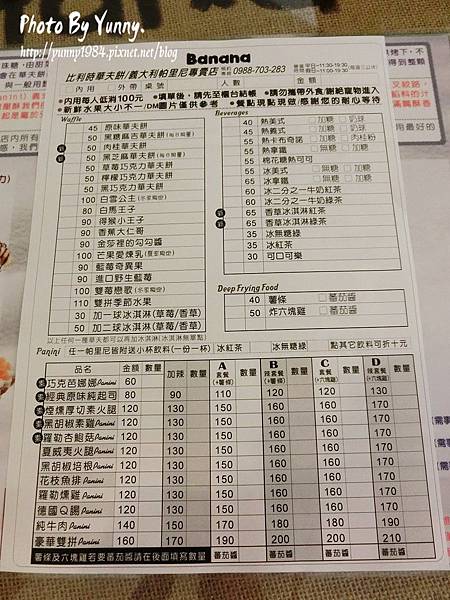 Photo By Yunny.
http://yunny1984.pixnet.net/blog
Banana
比利時華夫餅/義大利帕里尼專賣店 0988-703-283
金額
內用 外帶 桌號 人數
●內用每人低消100元 ●填單後,請先至櫃台結帳 ●請勿攜帶外食/謝絕寵物進入
●新鮮水果大小不一/DM圖片僅供參考 ●餐點現點現做/感謝您的耐心等待
Waffle
45 原味華夫餅
50 黑糖麻吉華夫餅(每日限量)
50 肉桂華夫餅
50 黑芝麻華夫餅(每日限量)
50 草莓巧克力華夫餅
50 檸檬巧克力華夫餅
50 黑巧克力華夫餅
100 白雪公主
80 白馬王子
90 得猴小王子
90 香蕉大仁哥
90 金莎裡的勾勾醬
100 芒果愛煉乳
90 藍莓奇異果
90 進口野生藍莓
100 雙莓戀歌
110 雙拼季節水果
30 加一球冰淇淋(草莓/香草)
50 加二球冰淇淋(草莓/香草)
以上任何一種華夫都可以再加冰淇淋
Beverages
40 熱美式 加糖 奶球
40 熱義式 加糖 奶球
55 熱卡布奇諾 加糖 肉桂粉
55 熱拿鐵 無糖 加糖
55 棉花糖熱可可
55 冰美式 無糖 加糖
65 冰拿鐵 無糖 加糖
60 冰二分之一牛奶紅茶
60 冰二分之一牛奶綠茶
65 香草冰淇淋紅茶
65 香草冰淇淋綠茶
35 冰無糖綠
35 冰紅茶
30 可口可樂
Deep Frying Food
40 薯條 蕃茄醬
50 炸六塊雞 蕃茄醬
Panini 任一帕里尼皆附送小杯飲料(一份一杯) 冰紅茶 冰無糖綠 點其它飲料可折十元
品名 金額 數量 加辣 數量 A套餐(+薯條) 數量 B辣套餐(+薯條) 數量 C套餐(+六塊雞) 數量 D辣套餐(+六塊雞) 數量
巧克芭娜娜Panini 60
經典原味純起司 80 90 110 120 120 130
煙燻厚切素火腿 120 130 150 160 160 170
黑胡椒素雞Panini 120 130 150 160 160 170
羅勒杏鮑菇Panini 120 130 150 160 160 170
夏威夷火腿Panini 120 130 150 160 160 170
黑胡椒培根Panini 120 130 150 160 160 170
花枝魚排Panini 120 130 150 160 160 170
羅勒燻雞Panini 120 130 150 160 160 170
德國Q腸Panini 120 130 150 160 160 170
純牛肉Panini 140 150 170 180 180 190
豪華雙拼Panini 160 170 190 200 200 210
薯條及六塊雞若要蕃茄醬請在後面填寫數量 蕃茄醬 蕃茄醬 蕃茄醬 蕃茄醬